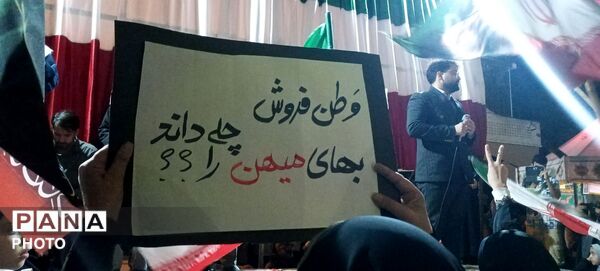 وَطن فروش
چه داند
بهای میهن را ؟؟
PANA
PHOTO